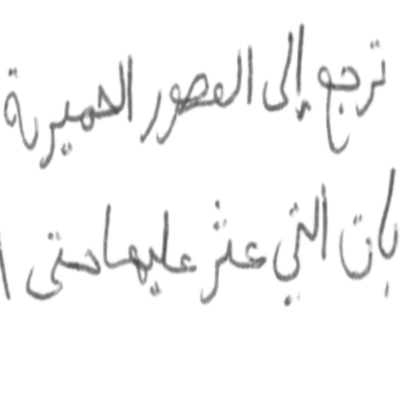 ترجع إلى العصور الحميرية
بات التي عثر عليها حتى ا